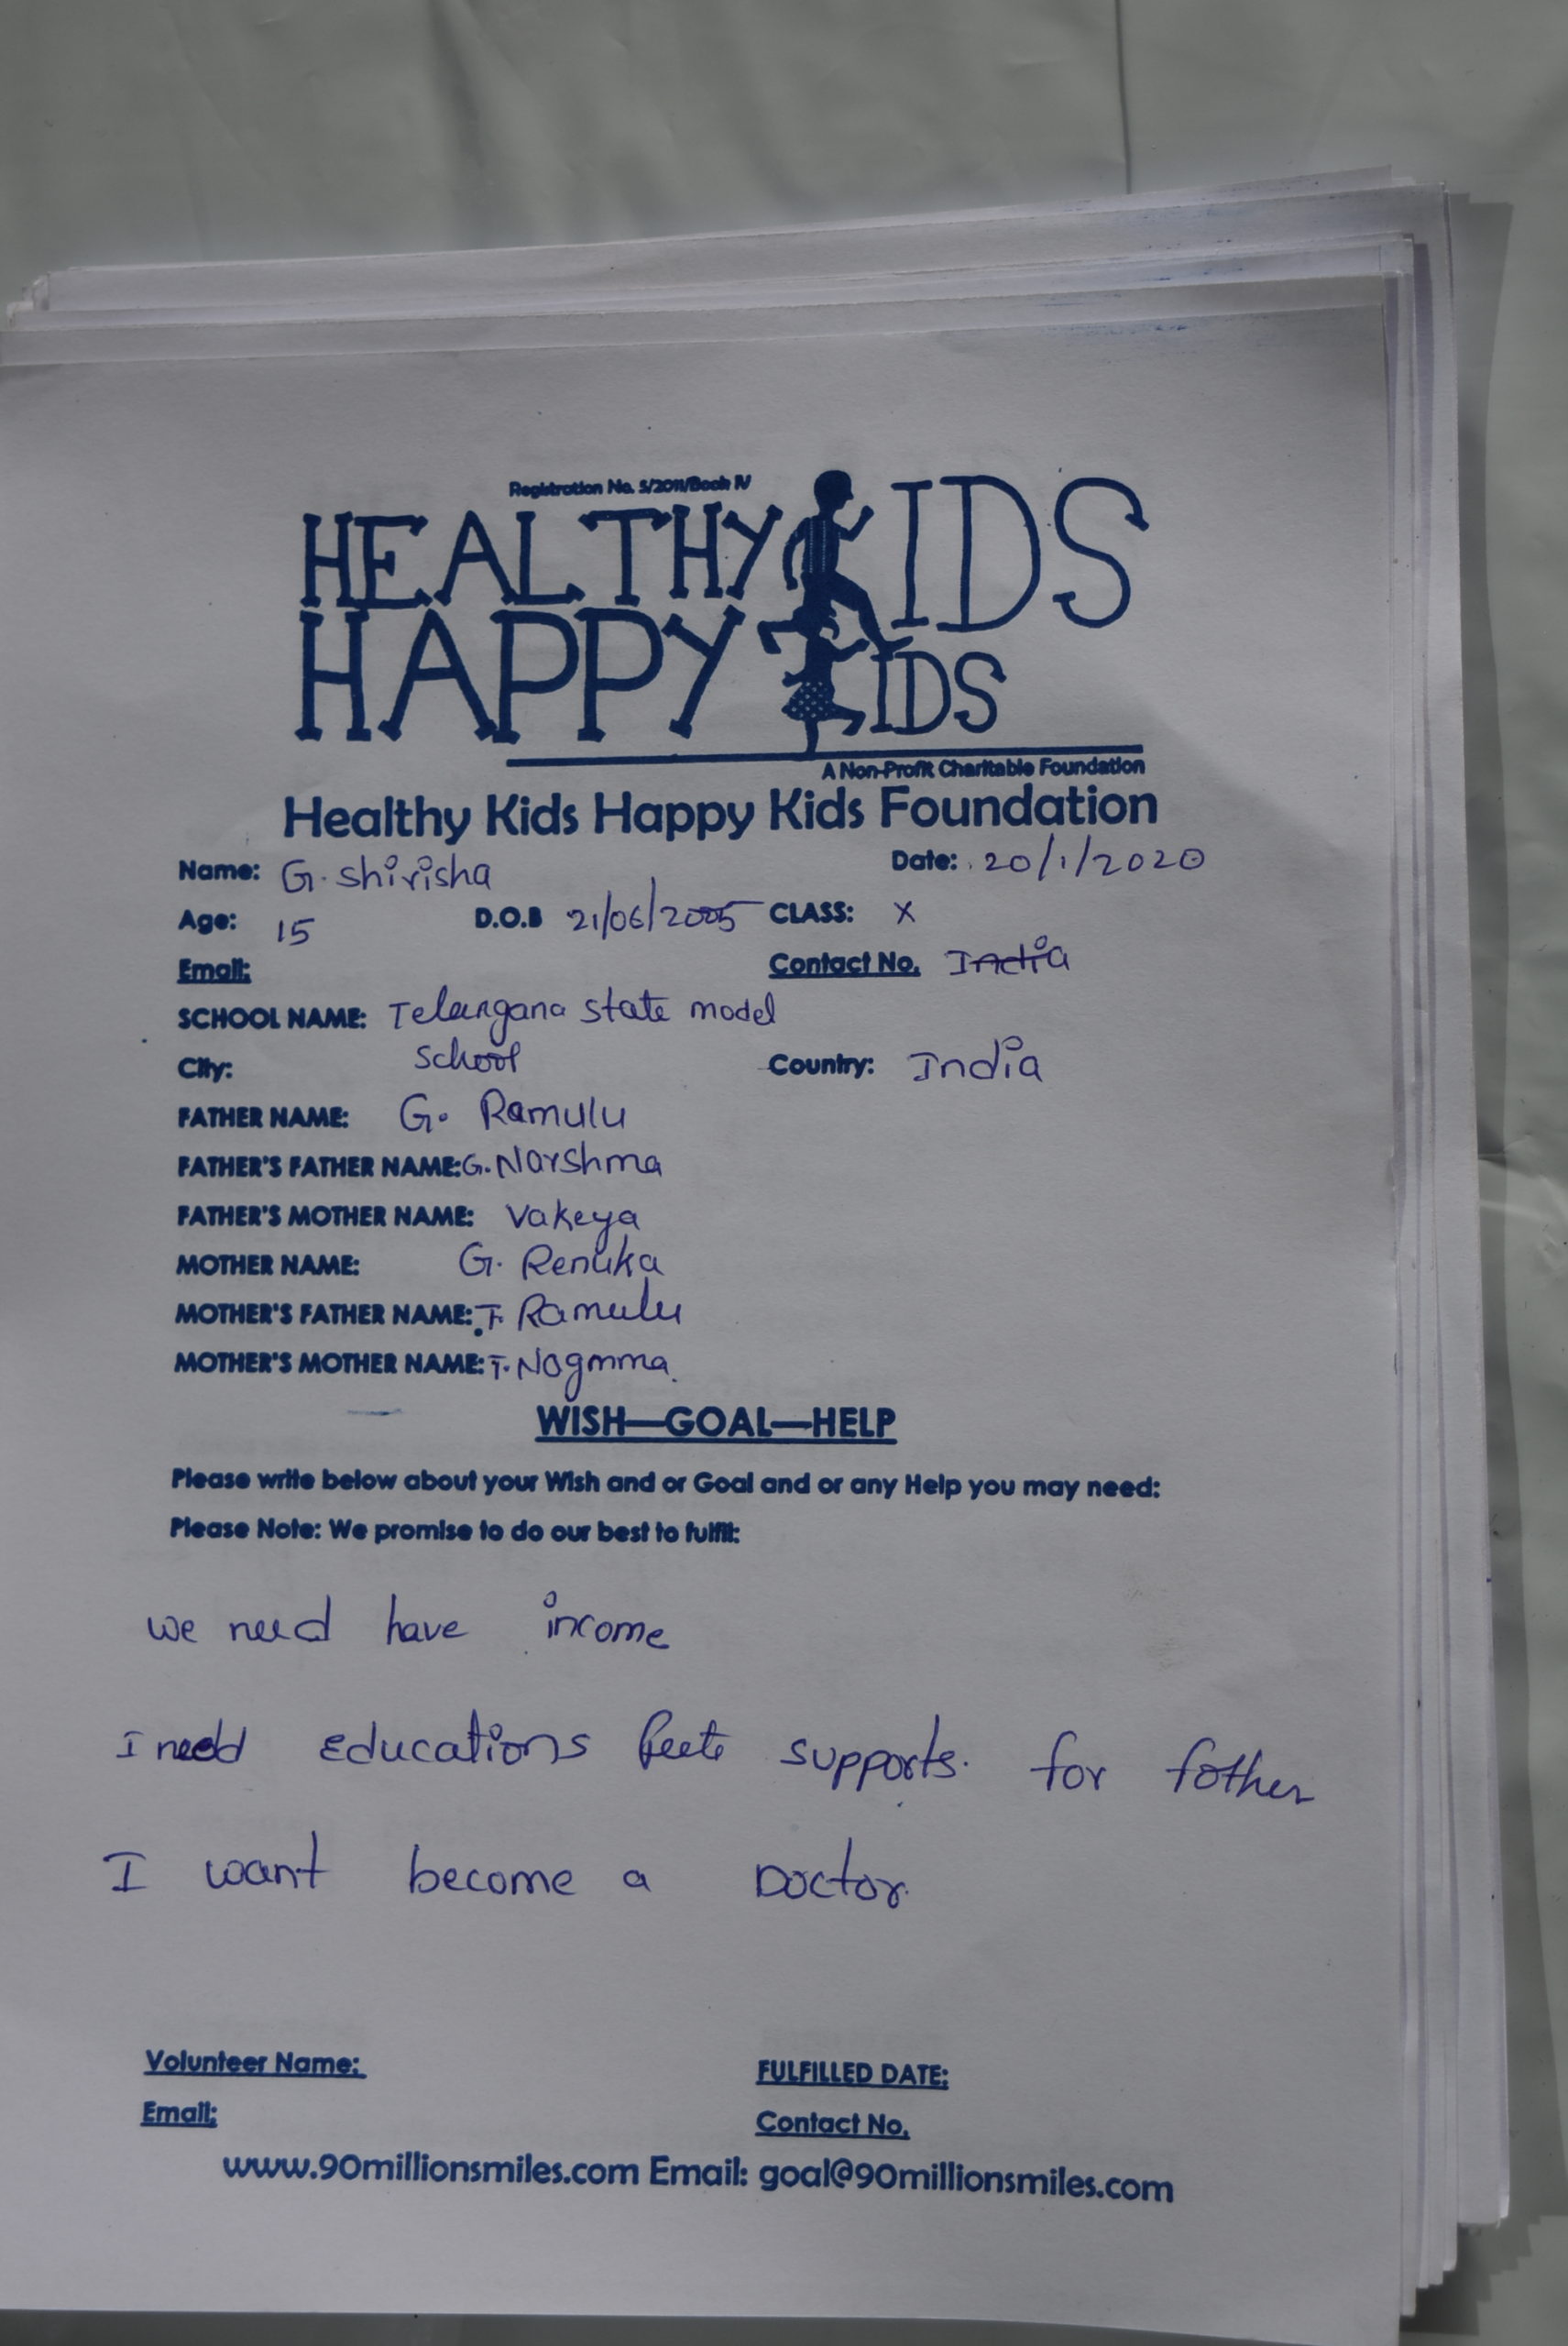 Registration No. 5/2011/Book IV
HEALTHY KIDS
HAPPY KIDS
A Non-Profit Charitable Foundation
Healthy Kids Happy Kids Foundation
Name: G. Shirisha Date: 20/1/2020
Age: 15 D.O.B 21/06/2005 CLASS: X
Email: Contact No. India
SCHOOL NAME: Telangana state model
school
City: Country: India
FATHER NAME: G. Ramulu
FATHER'S FATHER NAME: G. Narshma
FATHER'S MOTHER NAME: Vakeya
MOTHER NAME: G. Renuka
MOTHER'S FATHER NAME: T. Ramulu
MOTHER'S MOTHER NAME: T. Nagmma.
WISH—GOAL—HELP
Please write below about your Wish and or Goal and or any Help you may need:
Please Note: We promise to do our best to fulfil:
we need have income
I need Educations supports. for father
I want become a Doctor.
Volunteer Name: FULFILLED DATE:
Email: Contact No.
www.90millionsmiles.com Email: goal@90millionsmiles.com